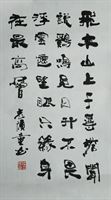 飛来山上千尋塔聞
說鷄鳴見日升不畏
浮雲遮望眼只緣身
在最高層